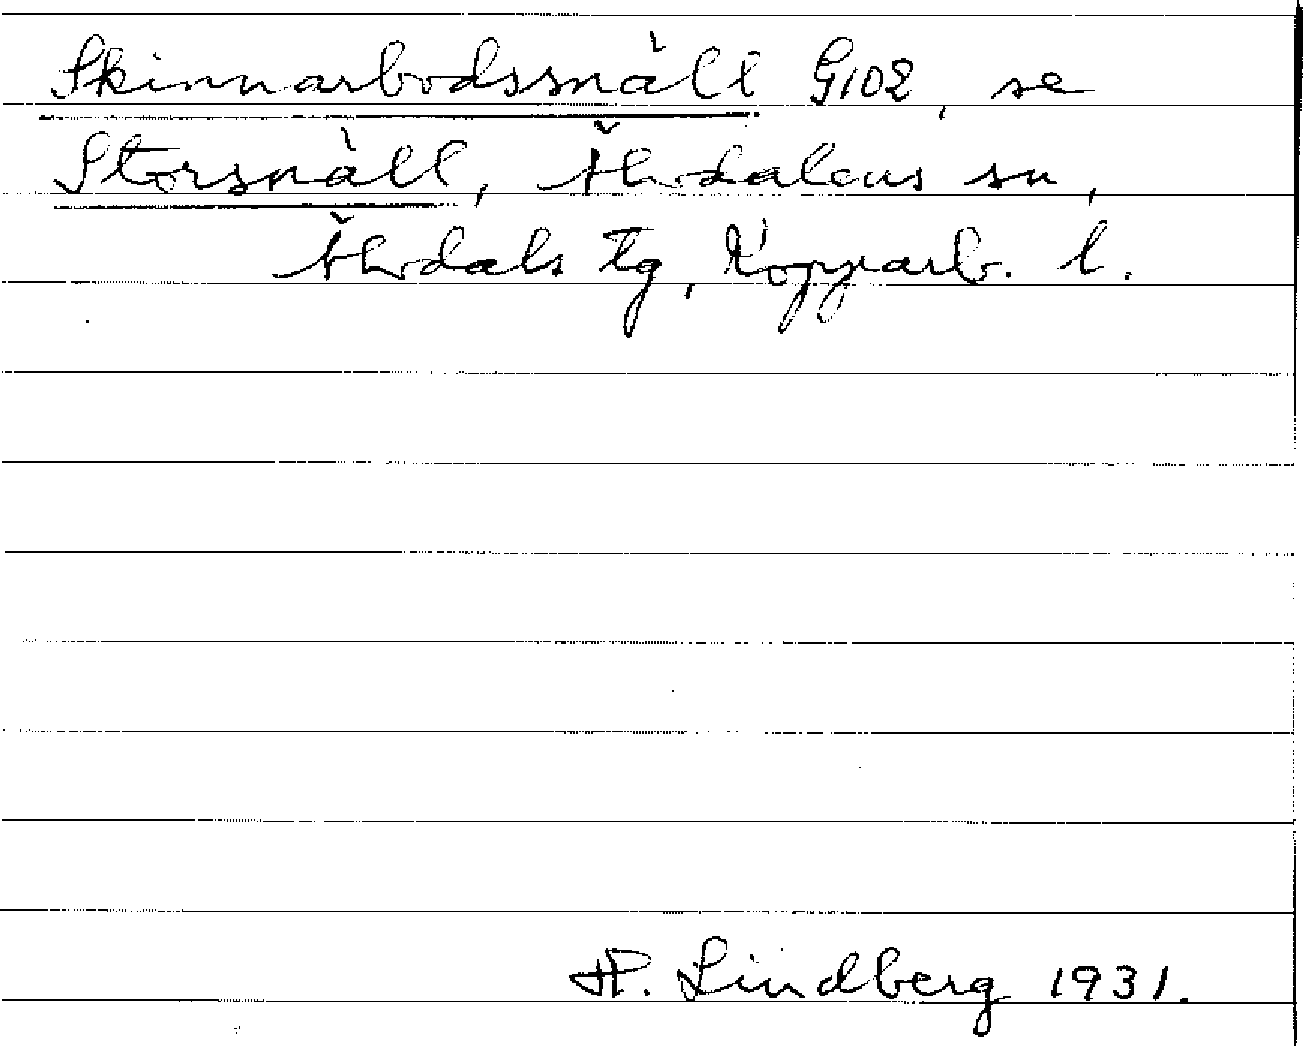 Skinnarbodssnäll G102, se
Storsnäll, Älvdalens sn,
Älvdals tg, Kopparb. l.
H. Lindberg 1931.